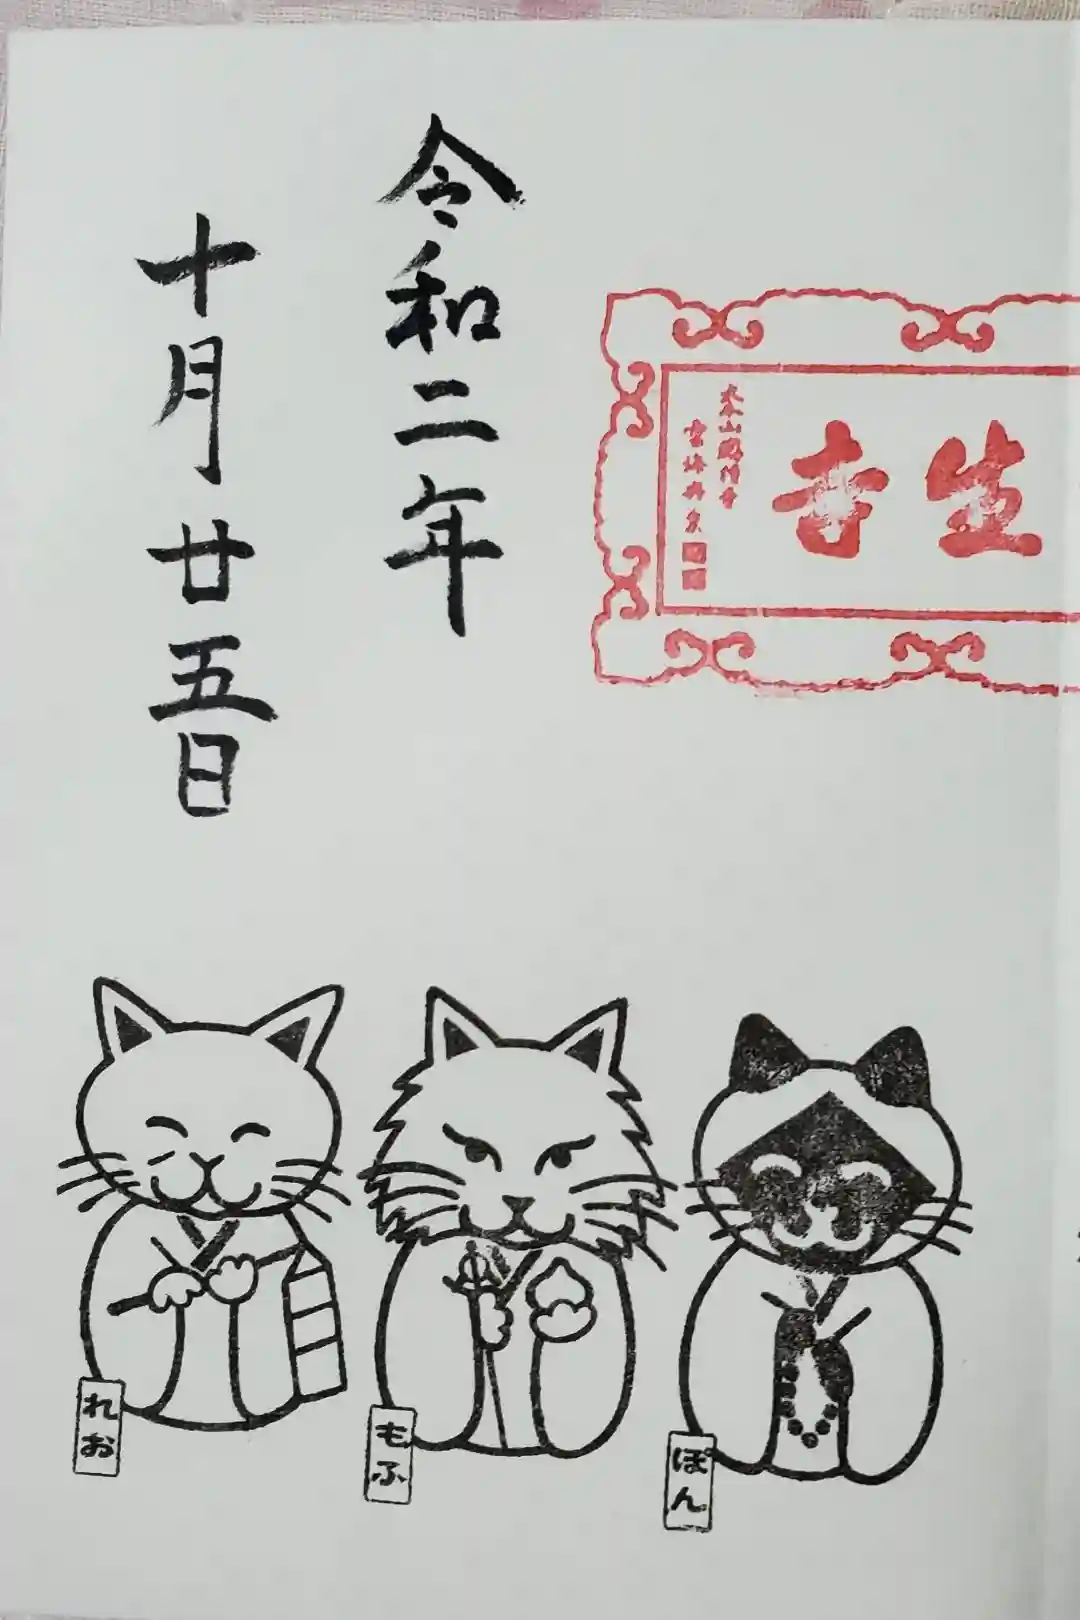 生寺
大本山總持寺
令和二年
十月廿五日
れお
もふ
ぽん